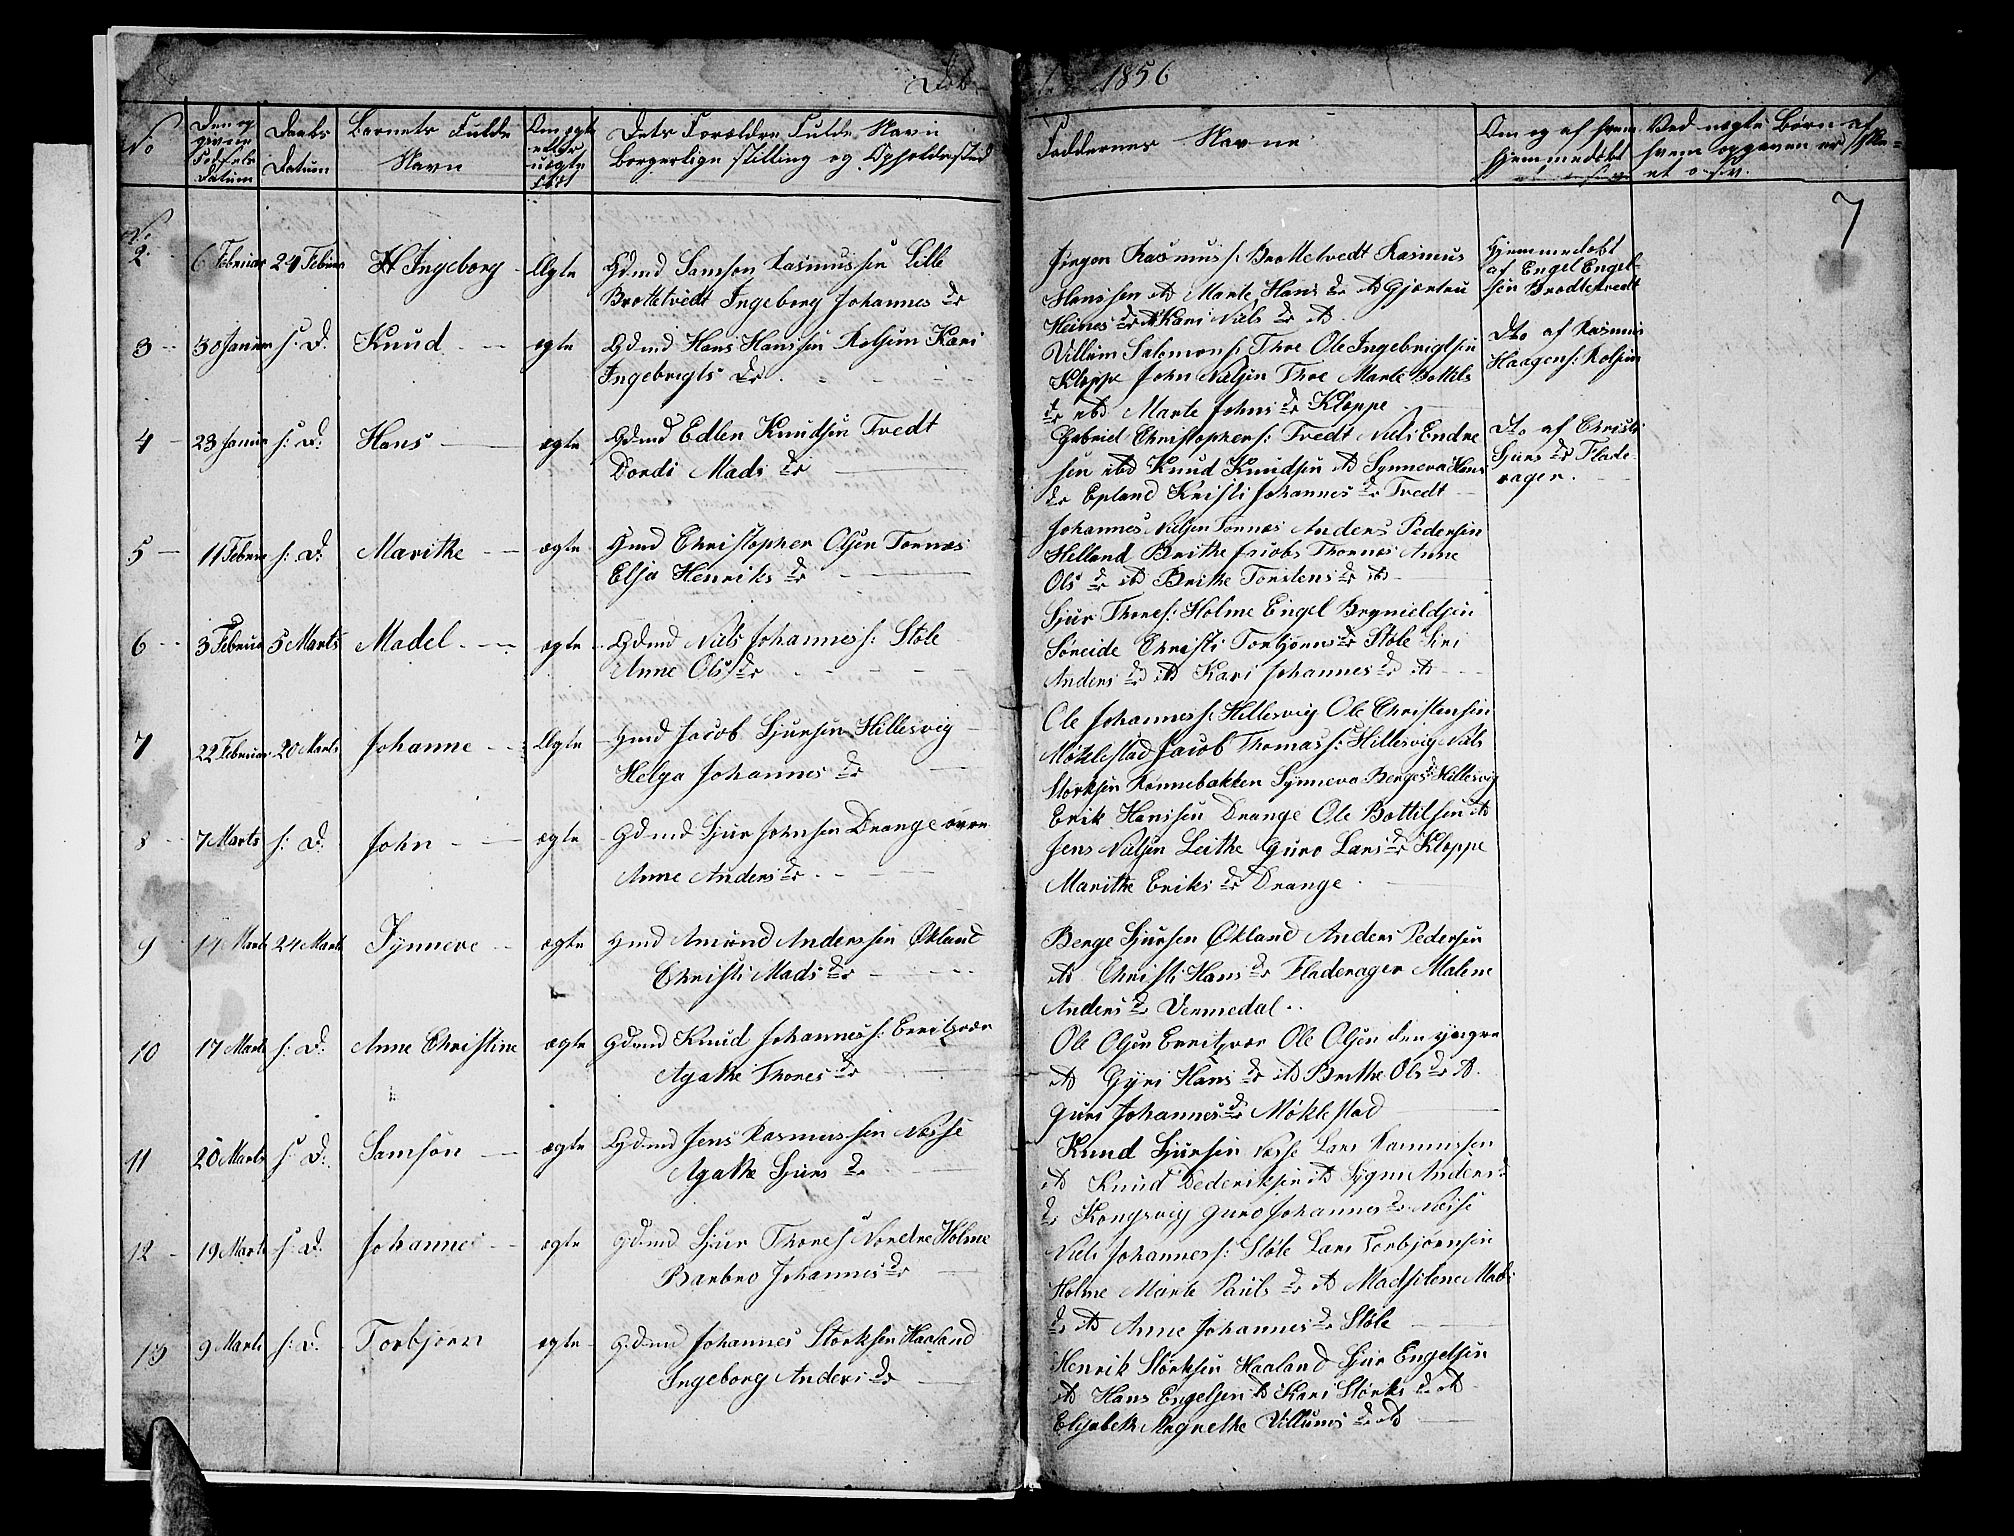 Døb
1856
No
Den op
givne
Fødsels
Datum
Daabs
Datum
Barnets Fulde
Navn
Om ægte
eller
uægte
født
Dets Forældre Fulde Navn
Borgerlige Stilling og Opholdssted
Faddernes Navne
Om og af hvem
hjemmedøbt
Ved uægte Børn af
hvem opgaven er
et o.s.v.
7
No.
2 6 Februar 24 Februar Ingeborg Ægte Gdmd Samson Rasmussen Lille
Brottetvedt Ingeborg Johannes dr
Jørgen Rasmus s. Brottetvedt Rasmus
Hanssen ib Marte Hans dr ib Gjertru
Heines dr ib Kari Niels dr ib
Hjemmedøbt
af Engel Engel-
sen Brottetvedt
3 30 Januar s. D. Knud ægte Gdmd Hans Hanssen Rolsem Kari
Ingebrigts dr
Villum Salomons. Thoe Ole Ingebrigtsen
Kloppe John Nielsen Thoe Marte Bottels
dr ibd Marte Johns dr Kloppe
Dto af Rasmus
Haagens. Rolsem
4 23 Januar s. D. Hans ægte Gdmd Edlen Knudsen Tvedt
Dordi Mads dr
Gabriel Christophers: Tvedt Niels Endre
sen ibd Knud Knudsen ib Synneva Hans
dr Epland Kristi Johannes dr Tvedt
Dto af Christi
Sjurs dr Flade-
rager.
5 11 Februar s. D. Marithe ægte Hmd Christopher Olsen Tornæs
Elsa Henriks dr
Johannes Nielsen Tornæs Anders Pedersen
Helland Brithe Jacobs Thornæs Anne
Ols dr ib Brithe Torstens dr ib
6 3 Februar 5 Marts Madel ægte Gdmd Niels Johanness: Støle
Anne Ols dr
Sjur Thores: Holme Engel Brynieldsen
Søreide Christi Torbjørns dr Støle Siri
Anders dr ib Kari Johannes dr ib
7 22 Februar 20 Marts Johanne Ægte Hmd Jacob Sjursen Hillesvig
Helga Johannes dr
Ole Johanness. Hillesvig Ole Christensen
Møklestad Jacob Thomass: Hillesvig Niels
Størksen Rønnebakken Synneva Berges dr Hillesvig
8 7 Marts s: D. John ægte Gdmd Sjur Johnsen Drange øvre
Anne Anders dr
Erik Hanssen Drange Ole Bottelsen ib
Jens Nielsen Leithe Guro Lars dr Kloppe
Marithe Eriks dr Drange
9 14 Marts 24 Marts Synneve ægte Hmd Amund Anderssen Økland
Christi Mads dr
Berge Sjursen Økland Anders Pedersen
ib Christi Hans dr Fladerager Malene
Anders dr Vermedal
10 17 Marts s: D. Anne Christine ægte Gdmd Knud Johanness: Erritzvær
Agathe Thores dr
Ole Olsen Erritzvær Ole Olsen den yngre
ib Gyri Hans dr ib Brithe Ols dr ib
Guri Johannes dr Møklestad
11 20 Marts s: D. Samson ægte Gdmd Jens Rasmussen Nesse
Agathe Sjurs dr
Knud Sjursen Nesse Lars Rasmussen
ib Knud Dederiksen ib Anders
dr Kongsvig Guro Johannes dr Nesse
12 19 Marts s: D. Johannes ægte Gdmd Sjur Thores. Nordre Holme
Barbro Johannes dr
Niels Johanness: Støle Lars Torbjørnsen
Holme Marte Pauls dr ib Madselene Mads
dr ib Anne Johannes dr Støle
13 9 Marts s: D. Torbjørn ægte Gdmd Johannes Størksen Haaland
Ingeborg Anders dr
Henrik Størksen Haaland Sjur Engelsen
ib Hans Engelsen ib Kari Størks dr ib
Elisabeth Magrethe Villums dr ib